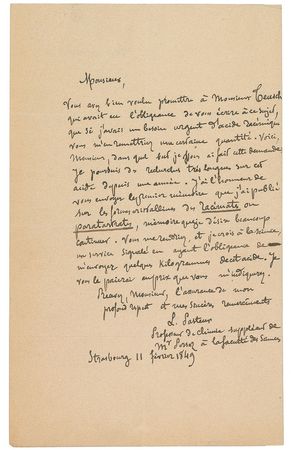 Monsieur,
Vous avez bien voulu promettre à Monsieur
qui avait eu l'obligeance de vous écrire à ce sujet,
que si j'avais un besoin urgent d'acide racémique
vous m'en remettriez une certaine quantité. Voici,
Monsieur, dans quel but je vous ai fait cette demande
Je poursuis des recherches très longues sur cet
acide depuis une année. J'ai l'honneur de
vous envoyer le premier mémoire que j'ai publié
sur les formes cristallines des racémates ou
paratartrates, mémoire que je désire beaucoup
continuer. Vous me rendriez, et je crois à la science,
un service signalé en ayant l'obligeance de
m'envoyer quelques kilogrammes de cet acide. Je
vous le paierai au prix que vous m'indiquerez.
Recevez, Monsieur, l'assurance de mon
profond respect et mes sincères remerciements
L. Pasteur
Professeur de chimie suppléant de
Mr à la faculté des Sciences
Strasbourg 11 février 1849